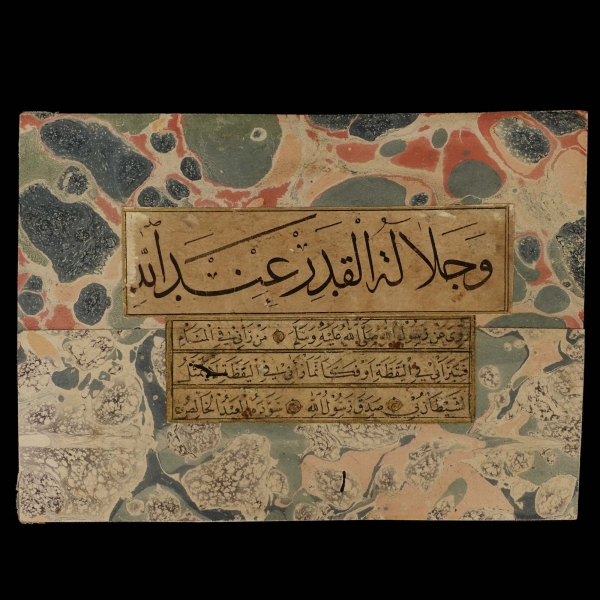 وَجَلَالَةُ الْقَدْرِ عِنْدَ اللهِ
رُوِيَ عَنْ رَسُولِ اللهِ صَلَّى اللهُ عَلَيْهِ وَسَلَّمَ مَنْ رَآنِي فِي الْمَنَامِ
فَسَيَرَانِي فِي الْيَقَظَةِ اَوْ فَكَاَنَّمَا رَآنِي فِي الْيَقَظَةِ
الشَّيْطَانُ بِي صَدَقَ رَسُولُ اللهِ سَوَّدَهُ
١